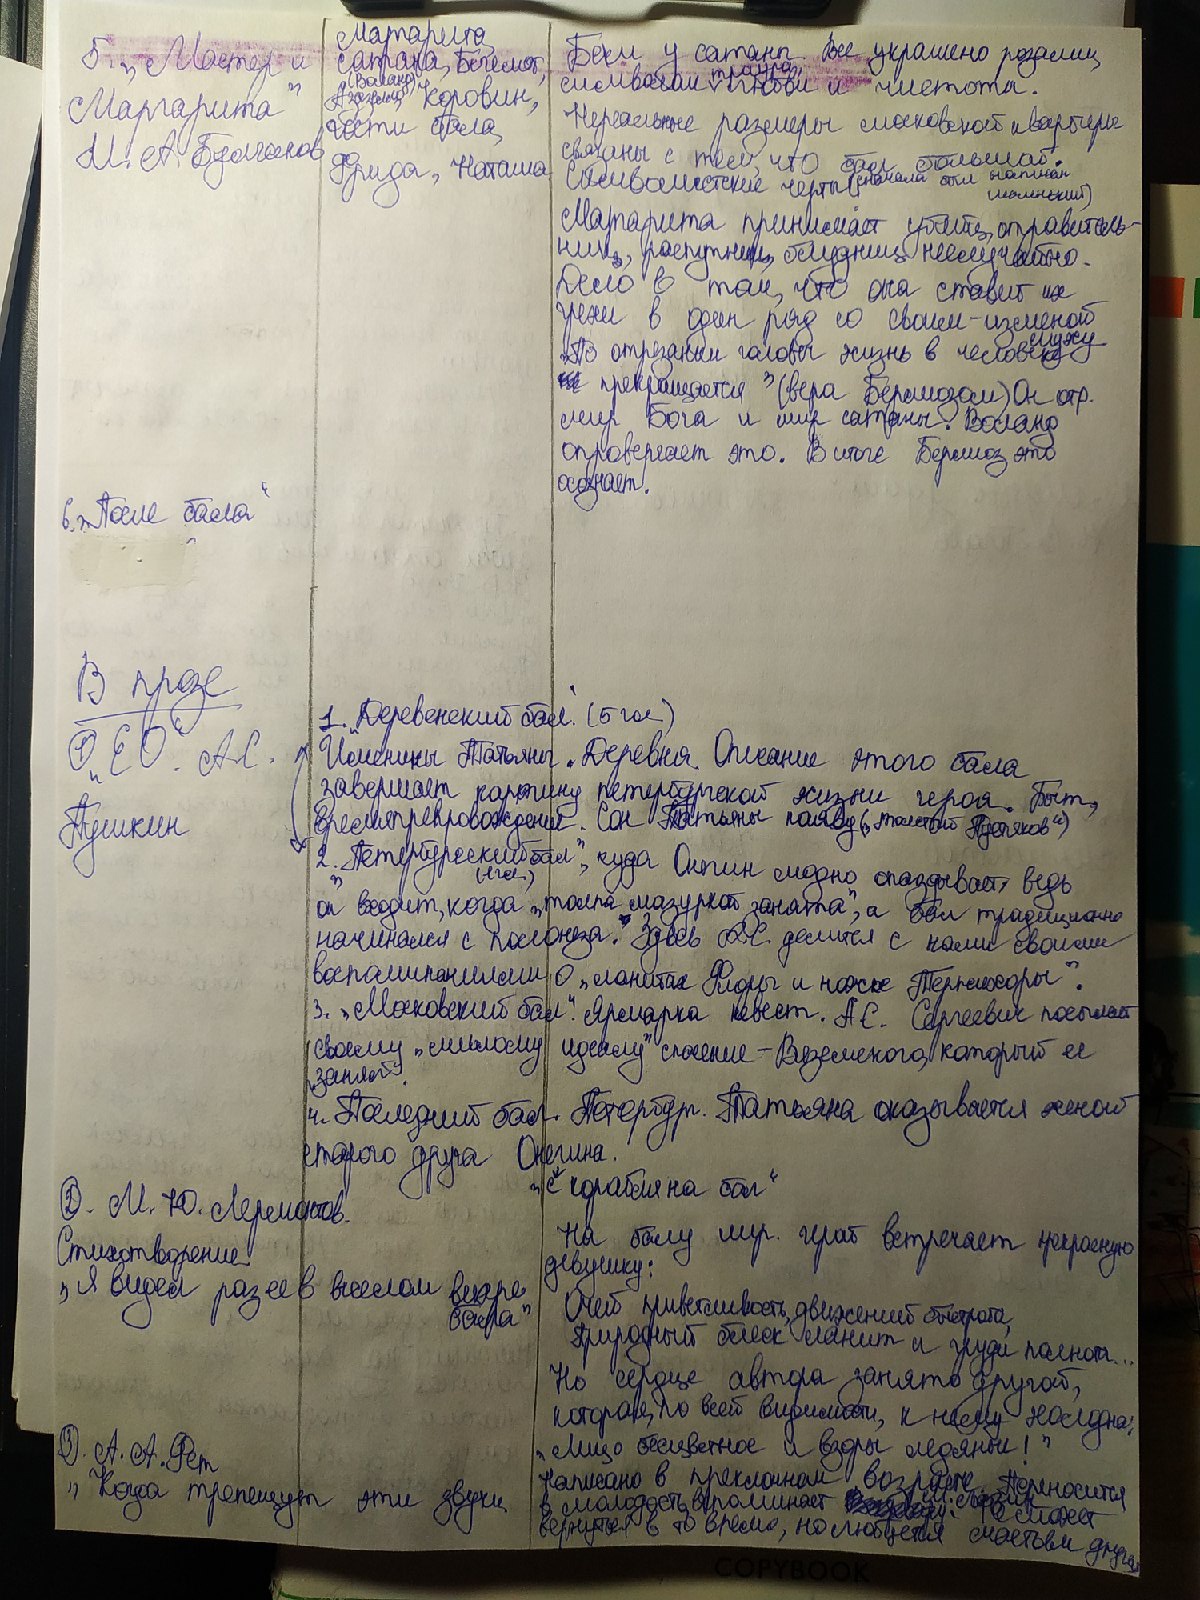 5. „Мастер и
Маргарита"
М. А. Булгаков
Маргарита,
сатана, Бегемот,
(Воланд)
Азазелло, Коровин,
гости бала,
Фрида, Наташа
Бал у сатаны. Всё украшено розами,
символами траура, любви и чистоты.
Нереальные размеры московской квартиры
связаны с тем, что бал большой.
Символистские черты (сначала был написан
маленький)
Маргарита принимает убийц, отравитель-
ниц, распутниц, блудниц неслучайно.
Дело в том, что она ставит их
грехи в один ряд со своим - изменой
мужу
„По отрезании головы жизнь в человеке
прекращается" (вера Берлиоза) Он отр.
мир Бога и мир сатаны. Воланд
опровергает это. В итоге Берлиоз это
осознает.
6. „После бала"
В прозе
① „ЕО". А.С.
Пушкин
1. „Деревенский бал". (5 гл)
Именины Татьяны. Деревня. Описание этого бала
завершает картину петербургской жизни героя. Быт,
времяпрепровождение. Сон Татьяны наяву („толстый Пустяков")
2. „Петербургский бал", куда Онегин модно опаздывает, ведь
(1 гл)
он входит, когда „толпа мазуркой занята", а бал традиционно
начинался с полонеза. Здесь А.С. делится с нами своими
воспоминаниями о „ланитах Флоры и ножке Терпсихоры".
3. „Московский бал". Ярмарка невест. А.С. Сергеевич посылает
своему „милому идеалу" спасение - Вяземского, который ее
занял.
4. Последний бал. Петербург. Татьяна оказывается женой
старого друга Онегина.
„с корабля на бал"
②. М. Ю. Лермонтов.
Стихотворение
„Я видел раз ее в веселом вихре
бала"
На балу лир. герой встречает прекрасную
девушку:
Очей приветливость, движений быстрота,
Природный блеск ланит и груди полнота...
Но сердце автора занято другой,
которая, по всей видимости, к нему холодна:
„Лицо бесцветное и взоры ледяные!"
③. А. А. Фет
„Когда трепещут эти звуки
Написано в преклонном возрасте. Переносится
в молодость, вспоминает
вернуться в то время, но любуется счастьем других
COPYBOOK